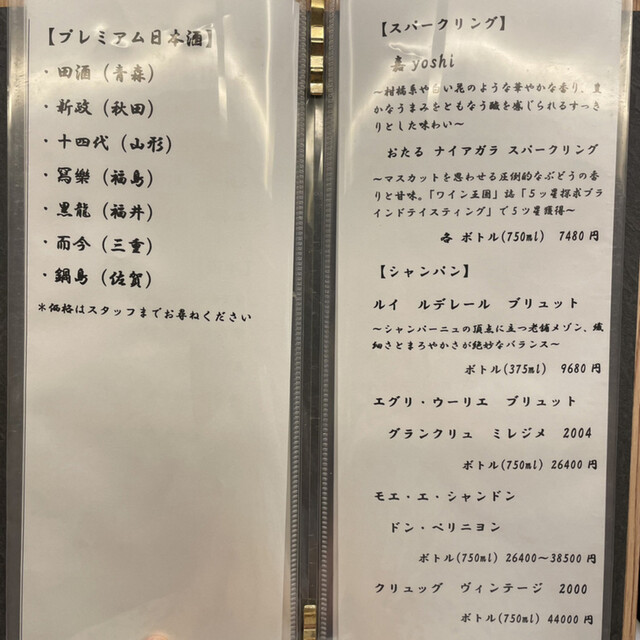 【プレミアム日本酒】
・田酒（青森）
・新政（秋田）
・十四代（山形）
・寫樂（福島）
・黒龍（福井）
・而今（三重）
・鍋島（佐賀）
＊価格はスタッフまでお尋ねください
【スパークリング】
嘉 yoshi
～柑橘系や白い花のような華やかな香り、豊
かなうまみをともなう酸を感じられるすっき
りとした味わい～
おたる ナイアガラ スパークリング
～マスカットを思わせる圧倒的なぶどうの香
りと甘味。「ワイン王国」誌「5ッ星探求ブラ
インドテイスティング」で5ッ星獲得～
各 ボトル(750ml) 7480円
【シャンパン】
ルイ ルデレール ブリュット
～シャンパーニュの頂点に立つ老舗メゾン、繊
細さとまろやかさが絶妙なバランス～
ボトル(375ml) 9680円
エグリ・ウーリエ ブリュット
グランクリュ ミレジメ 2004
ボトル(750ml) 26400円
モエ・エ・シャンドン
ドン・ペリニヨン
ボトル(750ml) 26400～38500円
クリュッグ ヴィンテージ 2000
ボトル(750ml) 44000円